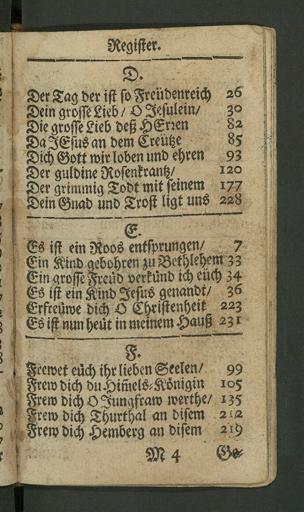 Register.
D.
Der Tag der ist so Freüdenreich 26
Dein grosse Lieb / O Jesulein / 30
Die grosse Lieb deß HErren 82
Da JEsus an dem Creütze 85
Dich Gott wir loben und ehren 93
Der guldine Rosenkrantz / 120
Der grimmig Todt mit seinem 177
Dein Gnad und Trost ligt uns 228
E.
Es ist ein Roos entsprungen / 7
Ein Kind gebohren zu Bethlehem 33
Ein grosse Freüd verkünd ich eüch 34
Es ist ein Kind Jesus genandt / 36
Erfreüwe dich O Christenheit 223
Es ist nun heüt in meinem Hauß 231
F.
Frewet eüch ihr lieben Seelen / 99
Frew dich du Him̃els-Königin 105
Frew dich O Jungfraw werthe / 135
Frew dich Thurthal an disem 212
Frew dich Hemberg an disem 219
M 4 Ge-